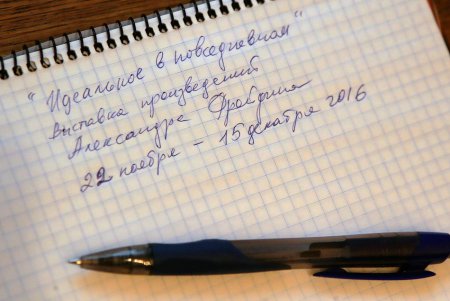 "Идеальное в повседневном"
Выставка произведений
Александра Фройдина
22 ноября – 15 декабря 2016